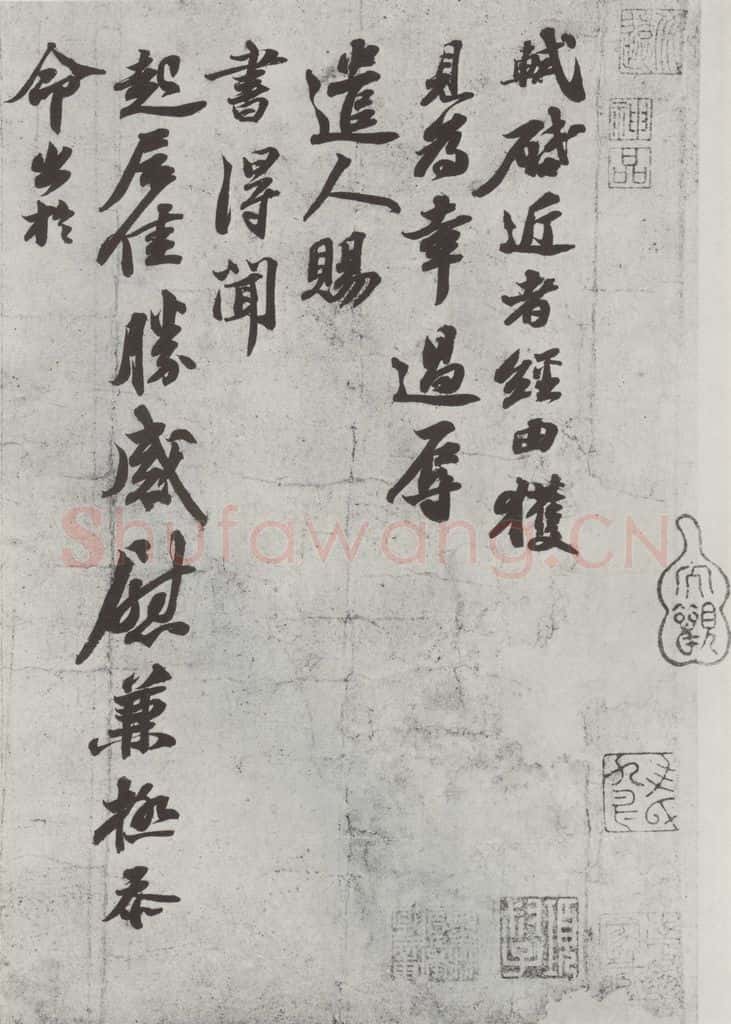 神品
軾啓近者經由獲
見為幸過辱
遣人賜
書得聞
起居佳勝感慰兼極忝
命出於
Shufawang.CN